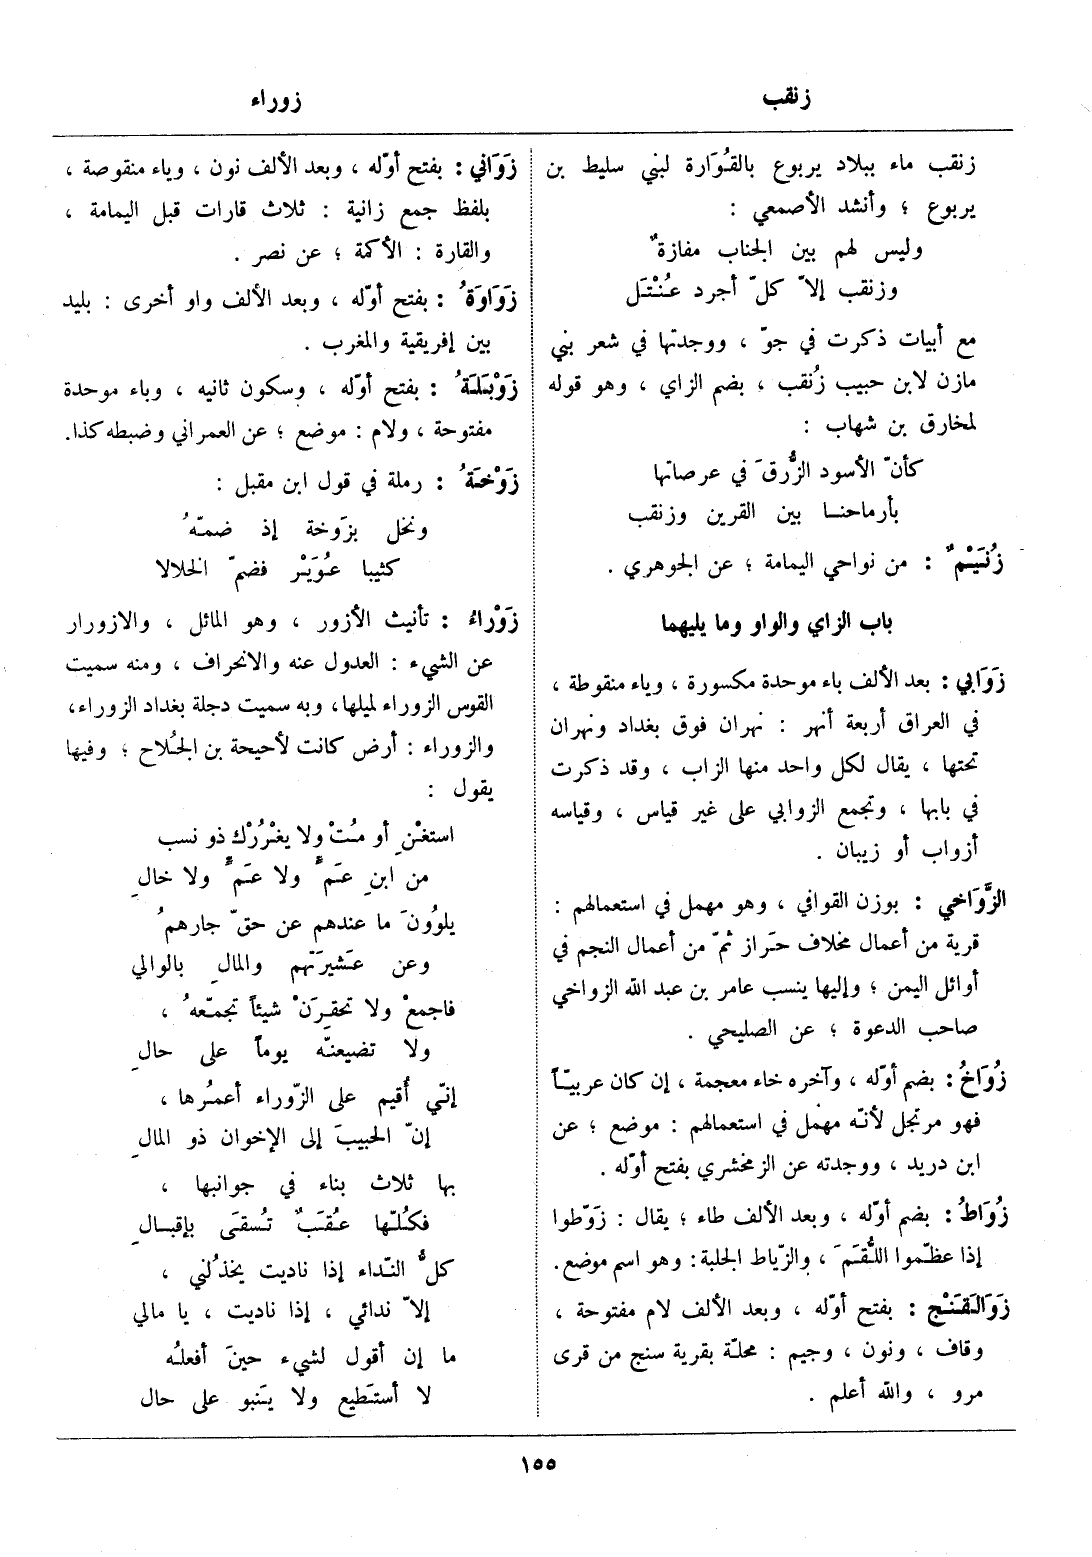 زنقب
زوراء
زنقب ماء ببلاد يربوع بالقُوَارة لبني سليط بن
يربوع ؛ وأنشد الأصمعي :
وليس لهم بين الجناب مفازةٌ
وزنقب إلاّ كلّ أجرد عُنْتَل
مع أبيات ذكرت في جوّ ، ووجدتها في شعر بني
مازن لابن حبيب زُنقب ، بضم الزاي ، وهو قوله
لمخارق بن شهاب :
كأنّ الأسود الزُّرقَ في عرصاتها
بأرماحنا بين القرين وزنقب
زُنَيْمٌ : من نواحي اليمامة ؛ عن الجوهري .
باب الزاي والواو وما يليهما
زَوَابي : بعد الألف باء موحدة مكسورة ، وياء منقوطة ،
في العراق أربعة أنهر : نهران فوق بغداد ونهران
تحتها ، يقال لكل واحد منها الزاب ، وقد ذكرت
في بابها ، وتجمع الزوابي على غير قياس ، وقياسه
أزواب أو زيبان .
الزَّوَاخي : بوزن القوافي ، وهو مهمل في استعمالهم :
قرية من أعمال مخلاف حَراز ثمّ من أعمال النجم في
أوائل اليمن ؛ وإليها ينسب عامر بن عبد الله الزواخي
صاحب الدعوة ؛ عن الصليحي .
زُوَاخُ : بضم أوّله ، وآخره خاء معجمة ، إن كان عربيّاً
فهو مرتجل لأنّه مهمل في استعمالهم : موضع ؛ عن
ابن دريد ، ووجدته عن الزمخشري بفتح أوّله .
زُوَاطُ : بضم أوّله ، وبعد الألف طاء ؛ يقال : زَوّطوا
إذا عظّموا اللُّقَمَ ، والزّياط الجلبة : وهو اسم موضع .
زَوَالَقَنْج : بفتح أوّله ، وبعد الألف لام مفتوحة ،
وقاف ، ونون ، وجيم : محلّة بقرية سنج من قرى
مرو ، والله أعلم .
زَوَاني : بفتح أوّله ، وبعد الألف نون ، وياء منقوصة ،
بلفظ جمع زانية : ثلاث قارات قبل اليمامة ،
والقارة : الأكمة ؛ عن نصر .
زَوَاوَةُ : بفتح أوّله ، وبعد الألف واو أخرى : بليد
بين إفريقية والمغرب .
زَوْبَلَةُ : بفتح أوّله ، وسكون ثانيه ، وباء موحدة
مفتوحة ، ولام : موضع ؛ عن العمراني وضبطه كذا .
زَوْخَةُ : رملة في قول ابن مقبل :
ونخل بزَوخة إذ ضمّهُ
كثيبا عُوَيْر فضمّ الخلالا
زَوْراءُ : تأنيث الأزور ، وهو المائل ، والازورار
عن الشيء : العدول عنه والانحراف ، ومنه سميت
القوس الزوراء لميلها ، وبه سميت دجلة بغداد الزوراء ،
والزوراء : أرض كانت لأحيحة بن الجُلاح ؛ وفيها
يقول :
استغنِ أو مُتْ ولا يغْرُرْك ذو نسب
من ابنِ عَمٍّ ولا عَمٍّ ولا خالِ
يلوُونَ ما عندهم عن حقّ جارهمُ
وعن عَشيرَتهم والمالِ بالوالي
فاجمعْ ولا تحقِرَنْ شيئاً تجمّعهُ ،
ولا تضيعنّه يوماً على حالِ
إنّي أُقيم على الزّوراء أعمُرها ،
إنّ الحبيبَ إلى الإخوان ذو المالِ
بها ثلاث بناء في جوانبها ،
فكُلّها عُقَبٌ تُسقَى بإقبالِ
كلُّ النّداء إذا ناديت يخذُلني ،
إلاّ ندائي ، إذا ناديت ، يا مالي
ما إن أقول لشيء حينَ أفعلُه
لا أستَطيع ولا يَنبو على حال
١٥٥